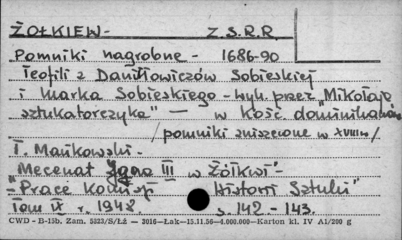 ŻÓŁKIEW - Z.S.R.R.
Pomniki nagrobne - 1686-90
Teofili z Daniłłowiczów Sobieskiej
i Marka Sobieskiego - wyk. przez „Mikołaja
sztukatorczyka" — w Kośc. dominikanów
/pomniki zniszczone w XVIII w/
T. Mańkowski -
Mecenat Jana III w Żółkwi" -
- „Prace Komisji Historii Sztuki"
tom IX r. 1948 s. 142 - 143.
CWD - B-15b. Zam. 5323/S/Łż — 3016—Łak—15.11.56—4.000.000—Karton kl. IV A1/200 g